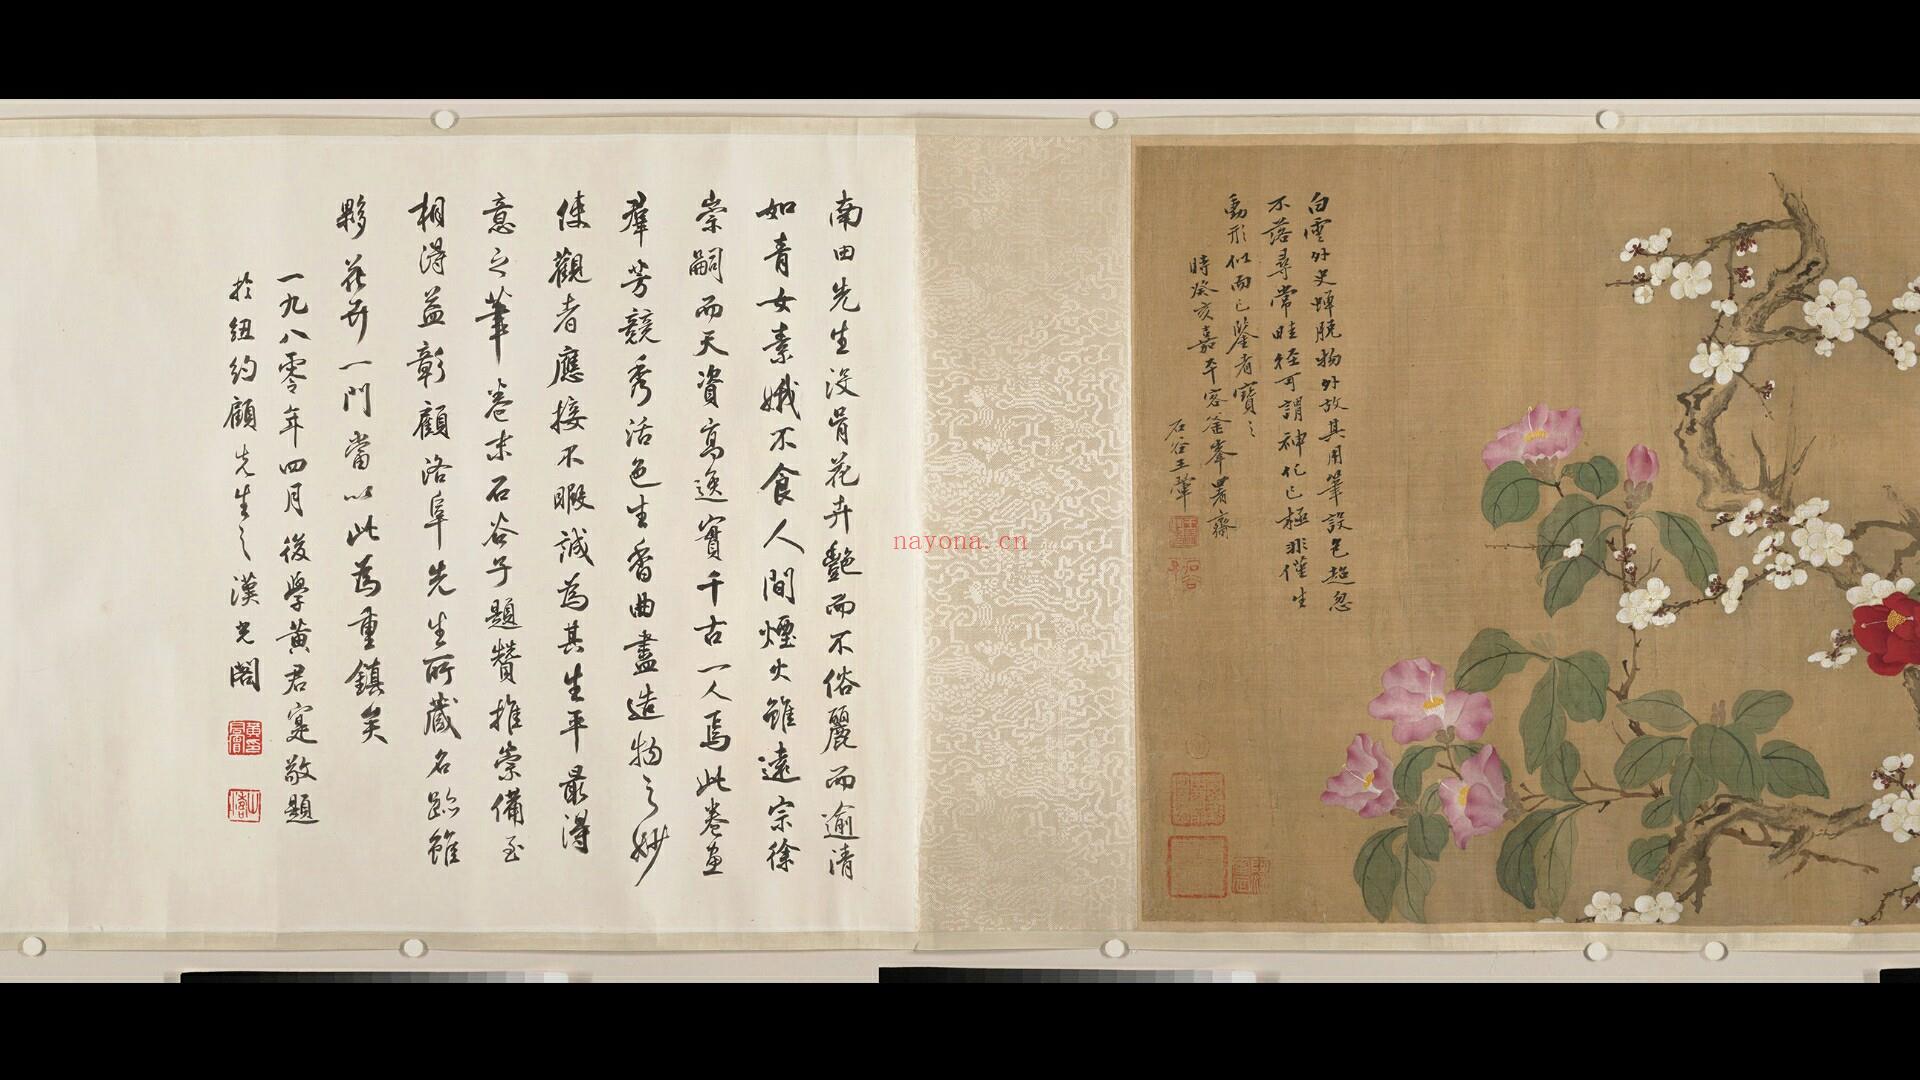 白雲外史蟬脫物外故其用筆設色超忽
不落尋常畦徑可謂神化已極非僅生
動形似而已鑒者寶之
時癸亥嘉平客釜峯署齋
石谷王翬
南田先生沒骨花卉艷而不俗麗而逾清
如青女素娥不食人間煙火雖遠宗徐
崇嗣而天資高逸實千古一人焉此卷畫
羣芳競秀活色生香曲盡造物之妙
使觀者應接不暇誠為其生平最得
意之筆卷末石谷子題贊推崇備至
相得益彰顧洛阜先生所藏名跡雖
夥花卉一門當以此為重鎮矣
一九八零年四月後學黃君寔敬題
於紐約顧先生之漢光閣
nayona.cn